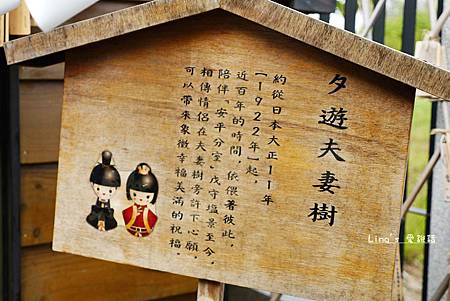 夕遊夫妻樹
約從日本大正11年
(1922年)起,
近百年的時間,依偎著彼此,
陪伴「安平分室」戍守塩景至今,
相傳情侶在夫妻樹旁許下心願,
可以帶來象徵幸福美滿的祝福。
Lina's 愛雜鍋